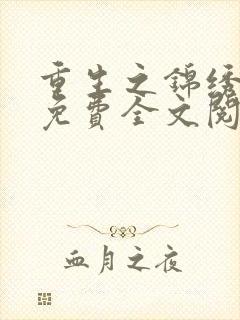 重生之锦绣
免費全文閱
血月之夜